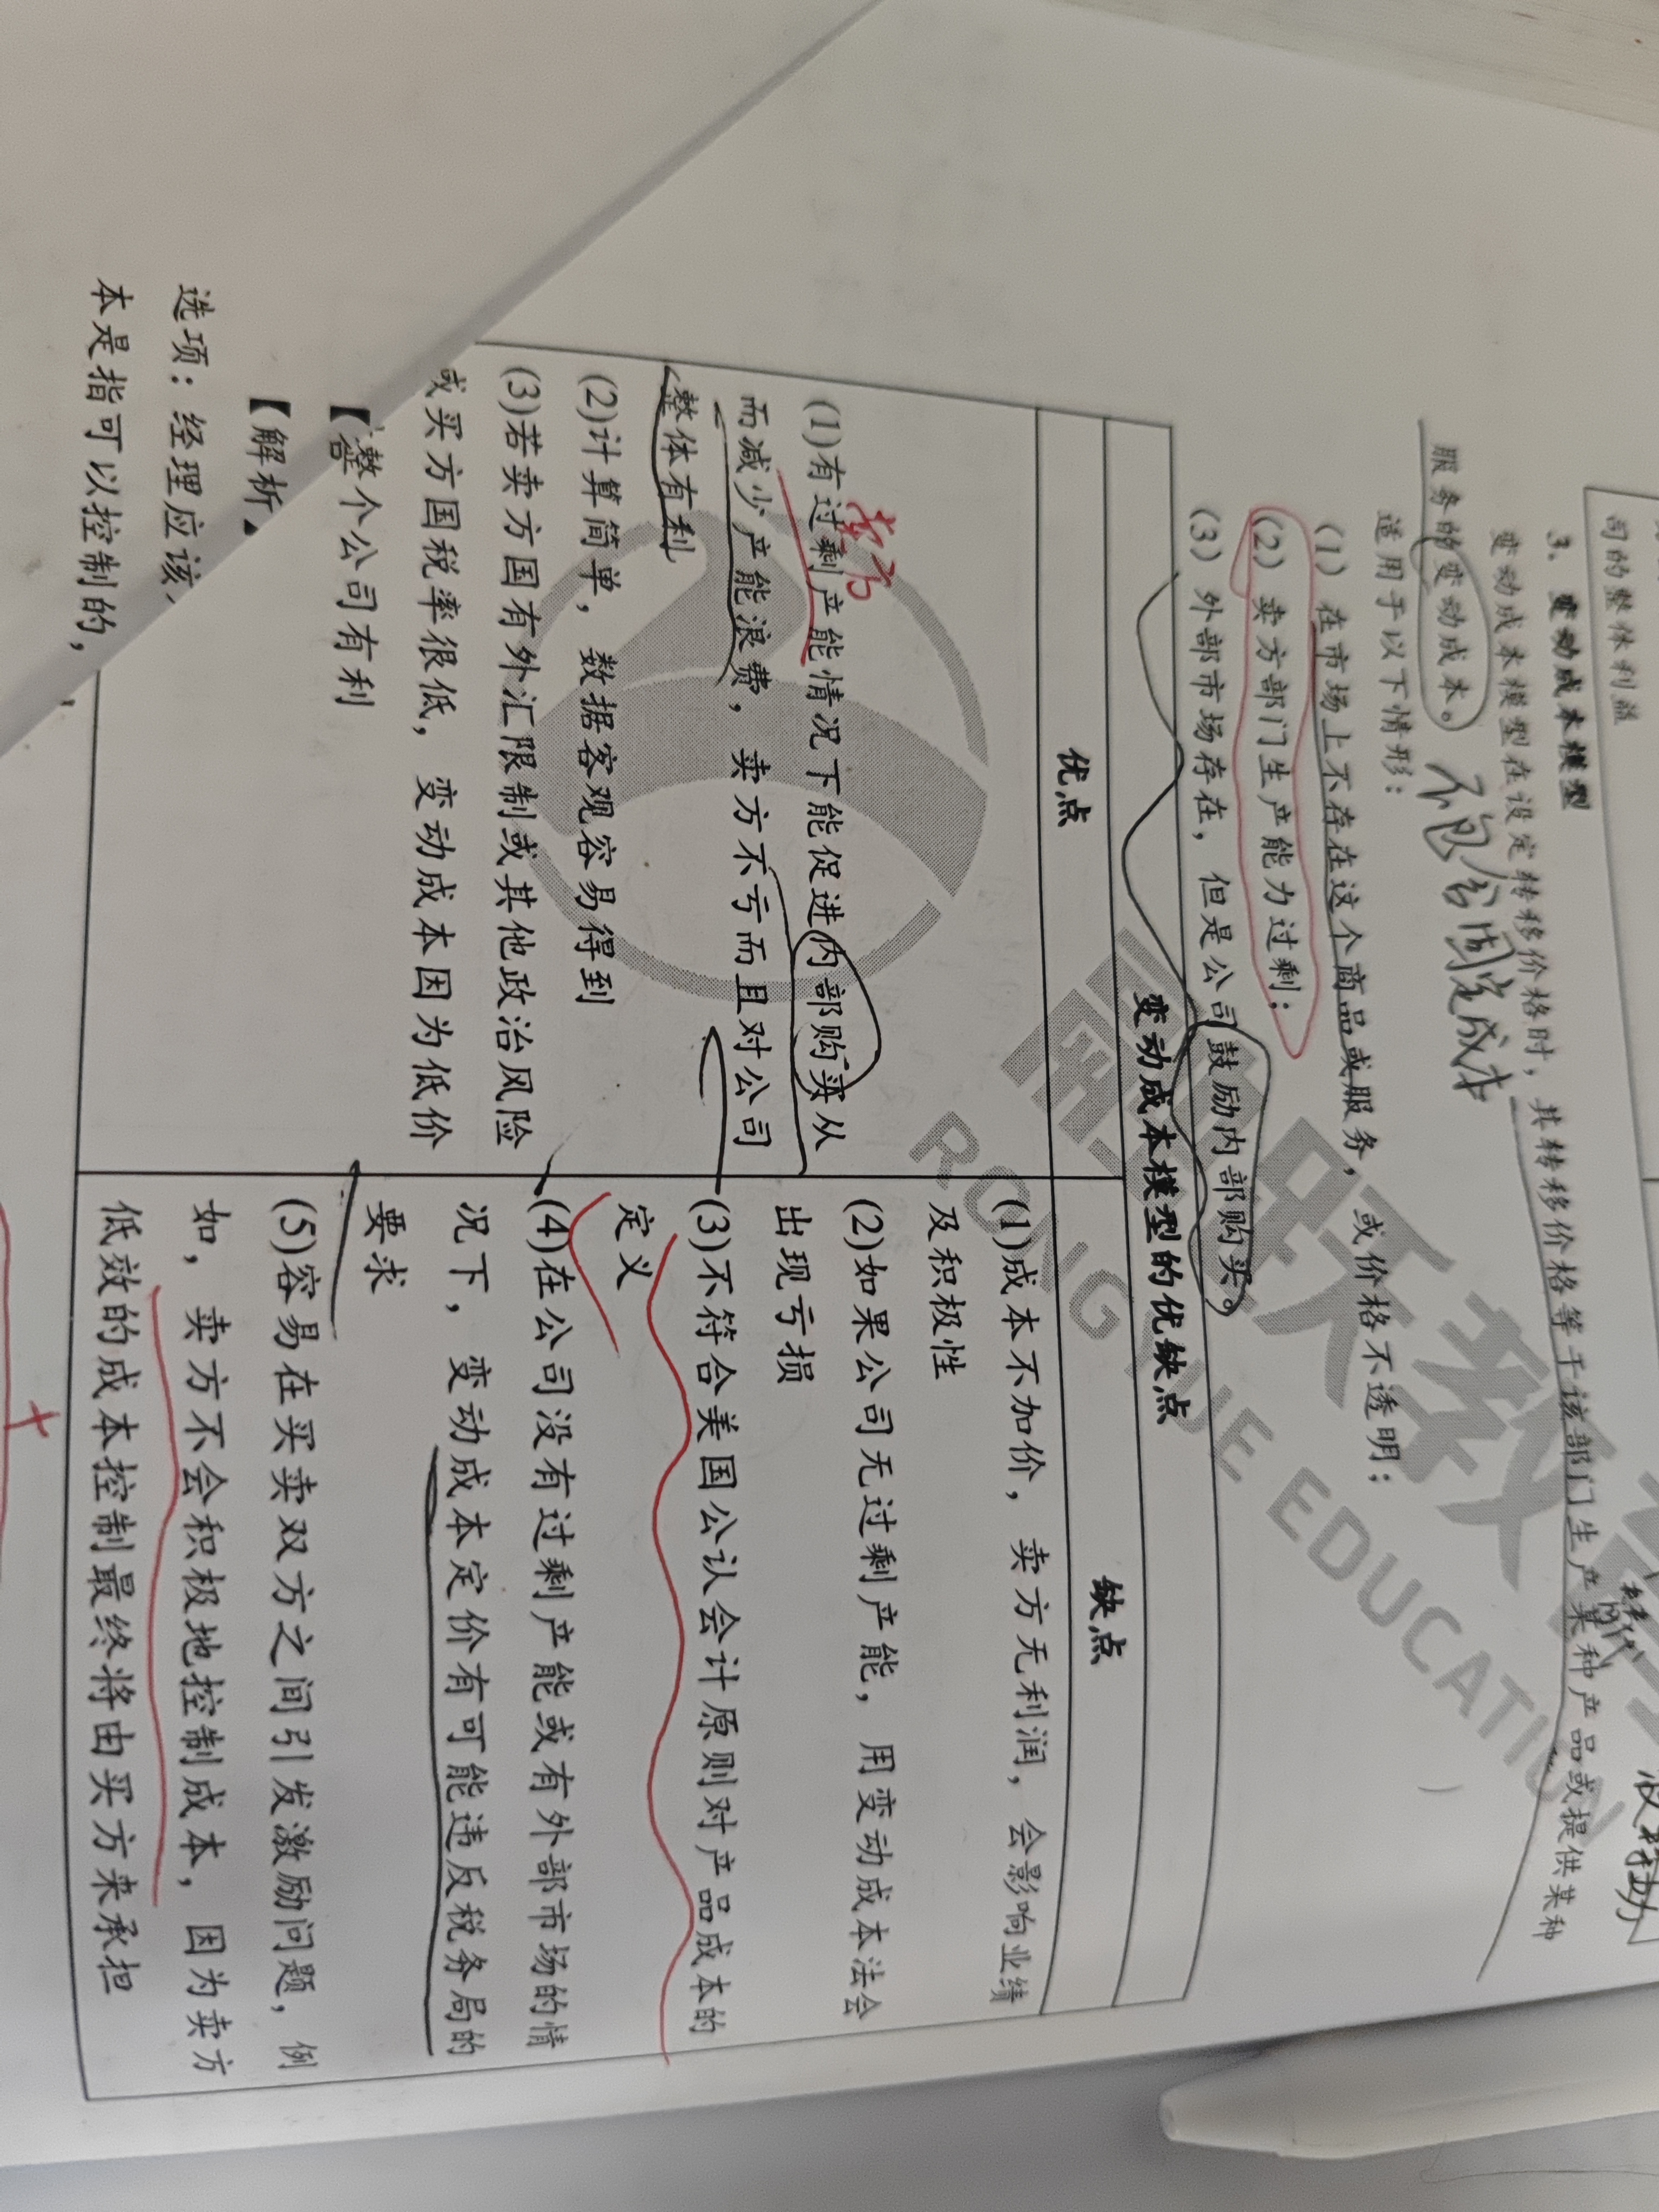 司的整体利益
3、变动成本模型
变动成本模型在设定转移价格时，其转移价格等于该部门生产某种产品或提供某种
服务的变动成本。不包含固定成本
适用于以下情形：
（1）在市场上不存在这个商品或服务，或价格不透明；
（2）卖方部门生产能力过剩；
（3）外部市场存在，但是公司鼓励内部购买。
变动成本模型的优缺点
优点
缺点
(1)有过剩产能情况下能促进内部购买从
而减少产能浪费，卖方不亏而且对公司
整体有利
(2)计算简单，数据客观容易得到
(3)若卖方国有外汇限制或其他政治风险
或买方国税率很低，变动成本因为低价
整个公司有利
(1)成本不加价，卖方无利润，会影响业绩
及积极性
(2)如果公司无过剩产能，用变动成本法会
出现亏损
(3)不符合美国公认会计原则对产品成本的
定义
(4)在公司没有过剩产能或有外部市场的情
况下，变动成本定价有可能违反税务局的
要求
(5)容易在买卖双方之间引发激励问题，例
如，卖方不会积极地控制成本，因为卖方
低效的成本控制最终将由买方来承担
【
【解析
选项：经理应该
本是指可以控制的，
跃教
RONG YUE EDUCATION